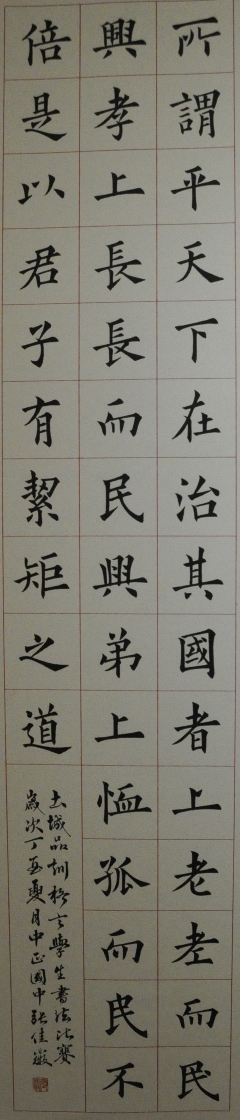 所謂平天下在治其國者上老老而民
興孝上長長而民興弟上恤孤而民不
倍是以君子有絜矩之道
土城品訓格言學生書法比賽
歲次丁亥夏月中正國中張佳